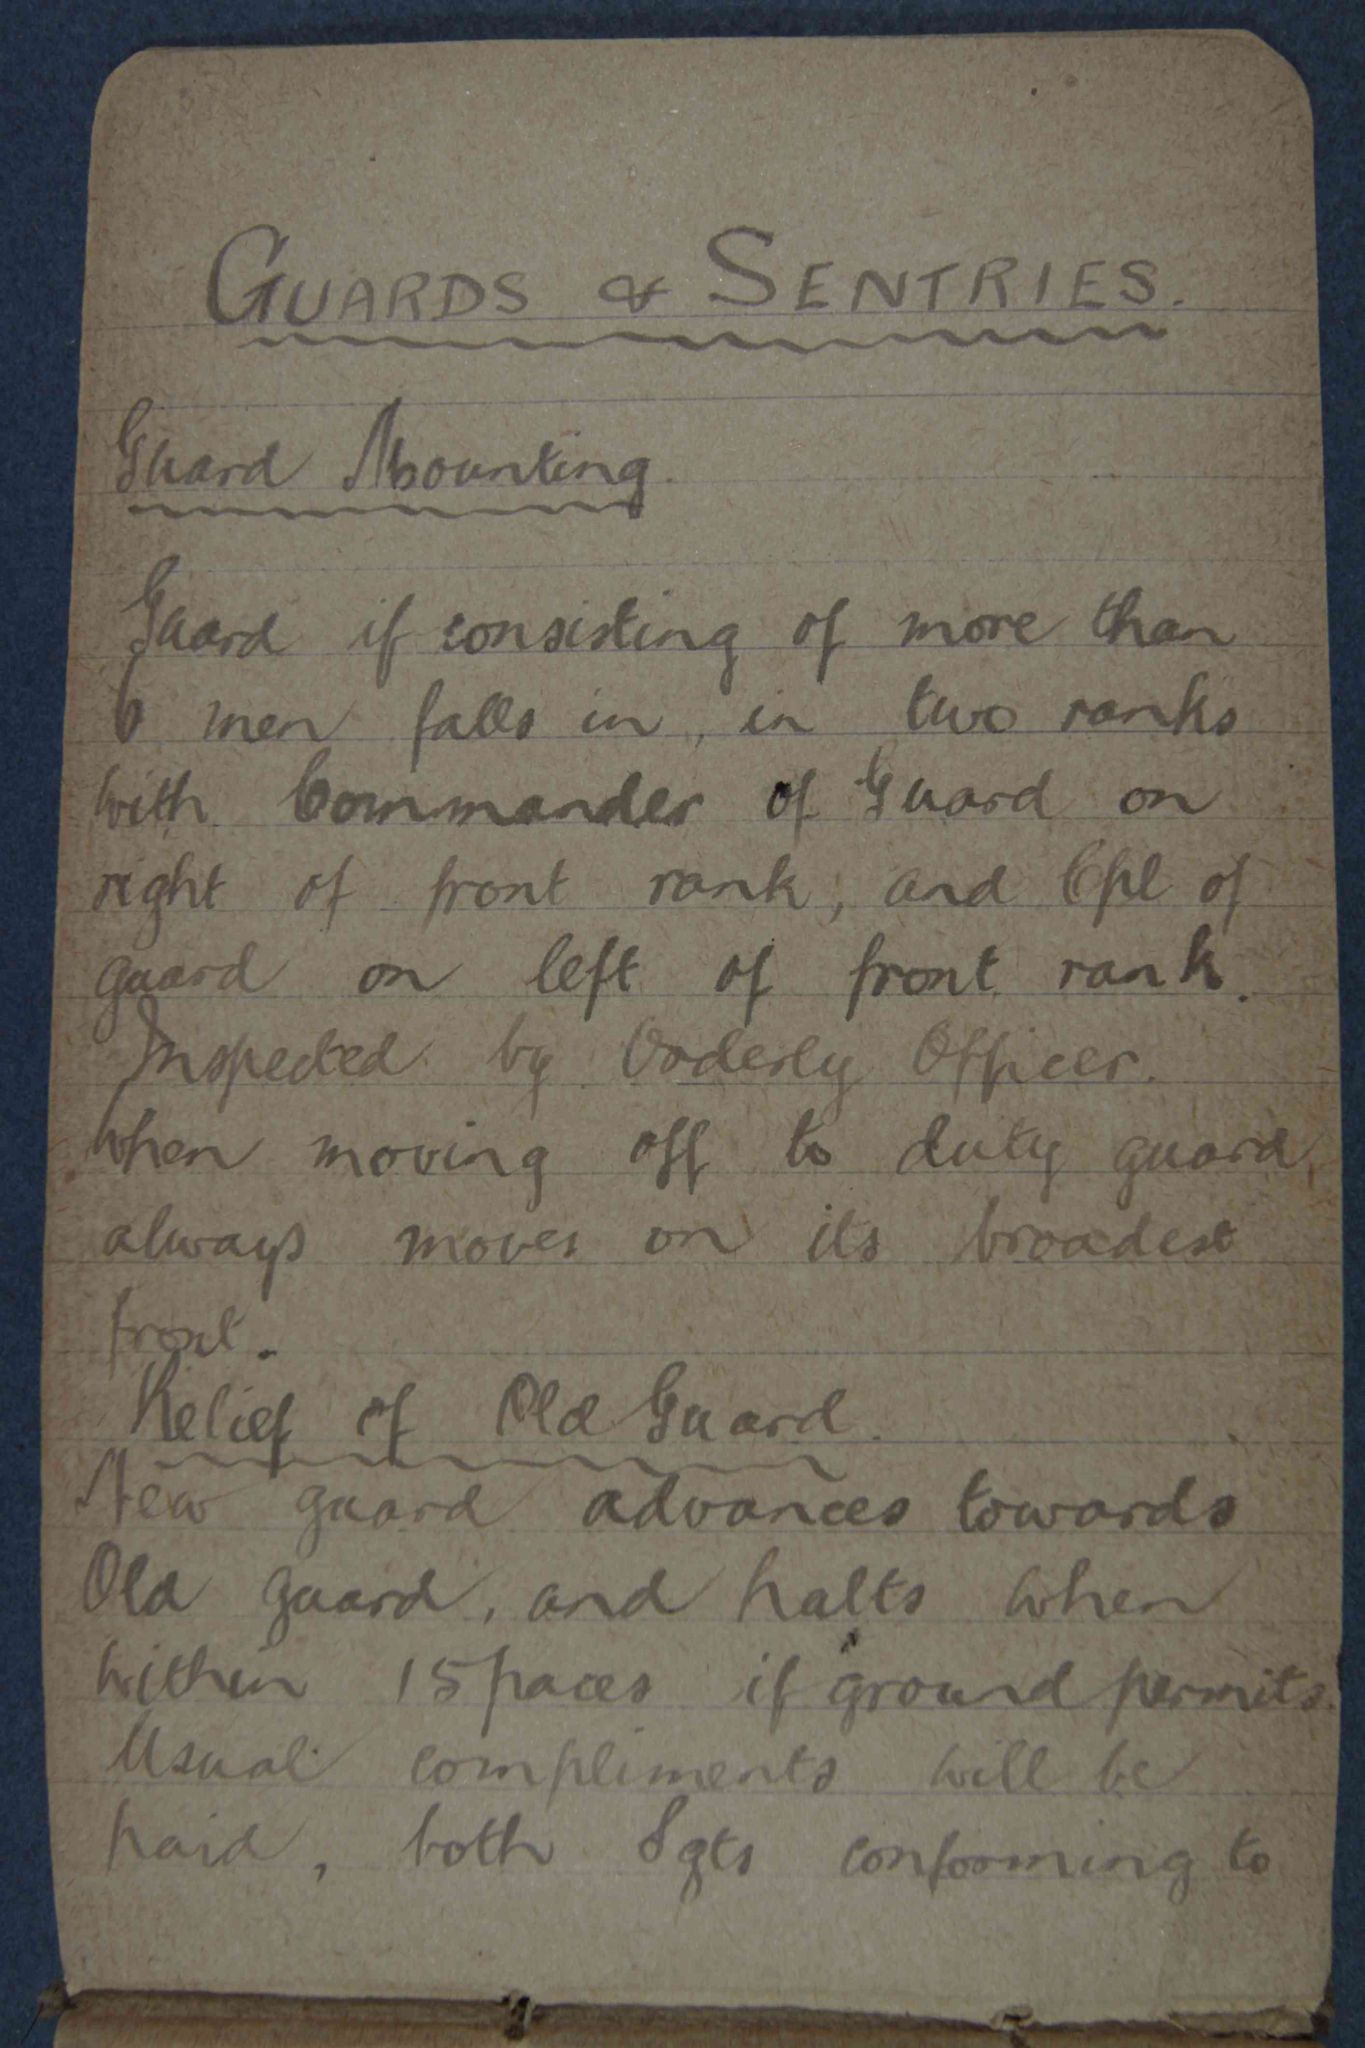 GUARDS & SENTRIES.
Guard Mounting.
Guard if consisting of more than
6 men falls in, in two ranks
with Commander of Guard on
right of front rank, and Cpl of
guard on left of front rank.
Inspected by Orderly Officer.
When moving off to duty guard
always moves on its broadest
front.
Relief of Old Guard.
New guard advances towards
Old guard, and halts when
within 15 paces if ground permits.
Usual compliments will be
paid, both Sgts conforming to